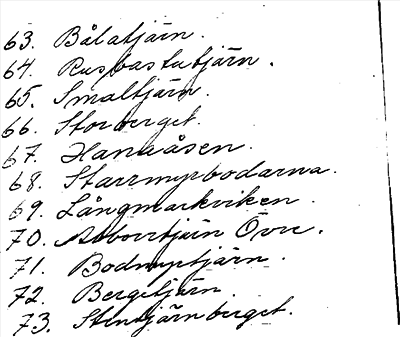 63. Bålatjärn.
64. Rusbastutjärn.
65. Smaltjärn.
66. Storberget.
67. Hanaåsen.
68. Starrmyrbodarna.
69. Långmarkviken.
70. Övre.
71. Bodmyrtjärn.
72. Bergetjärn
73. Stentjärnberget.